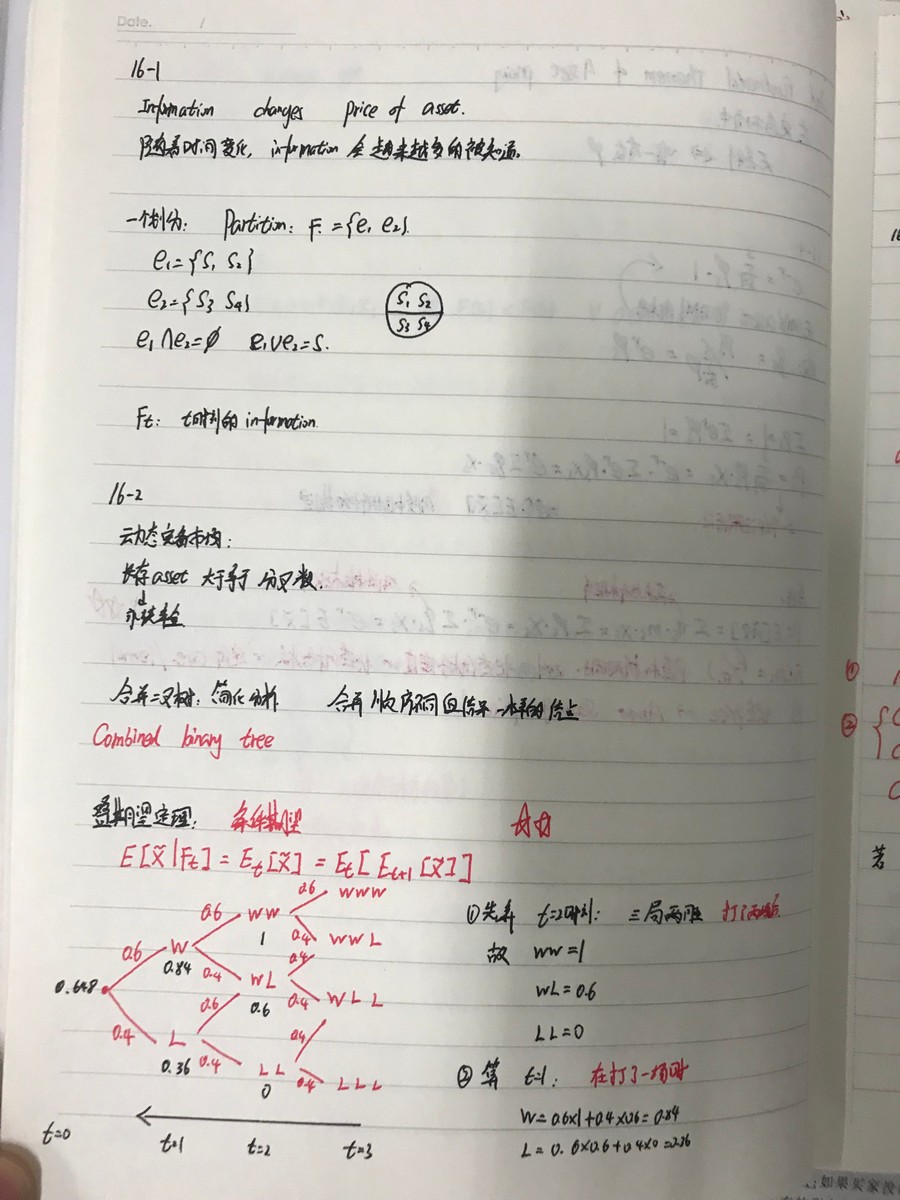 Date. /
16-1
Information changes price of asset.
随着时间变化, information 会越来越多的被知道。
一个划分: Partition: F = {e₁ e₂}.
e₁ = {S₁ S₂}
e₂ = {S₃ S₄}
S₁ S₂
S₃ S₄
e₁∩e₂=∅ e₁∪e₂=S.
Ft: t时刻的information.
16-2
动态完备市场:
长存asset 大于等于 分叉数.
合并二叉树: 简化分析 合并 顺序不同但结果一样的结点
Combined binary tree
叠期望定理: 条件期望
E[x̃|Ft] = Et[x̃] = Et[Et+1[x̃]]
0.6 WWW
0.6 WW 0.4 WWL
1
0.6 W 0.4
0.84 0.4 WL 0.4 WLL
0.648 0.6 0.6
0.4 L 0.4
0.36 0.4 LL 0.4 LLL
0
t=0 t=1 t=2 t=3
①先算 t=2时刻: 三局两胜 打了两场后
故 WW=1
WL=0.6
LL=0
②算 t=1: 在打了一场时
W=0.6×1+0.4×0.6=0.84
L=0.6×0.6+0.4×0=0.36
16
①
②
若
如果买家